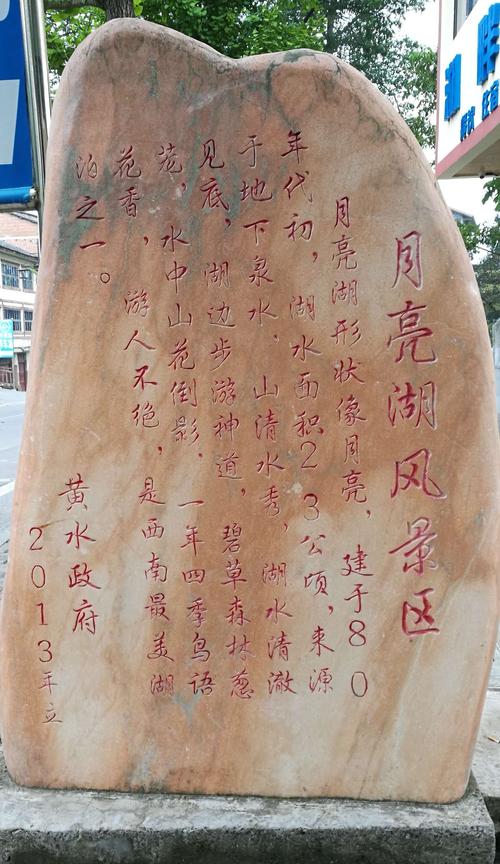 月亮湖风景区
月亮湖形状像月亮，建于80
年代初，湖水面积23公顷，来源
于地下泉水，山清水秀，湖水清澈
见底，湖边步游神道，碧草森林葱
茏，水中山花倒影，一年四季鸟语
花香，游人不绝，是西南最美湖
泊之一。
黄水政府
2013年立